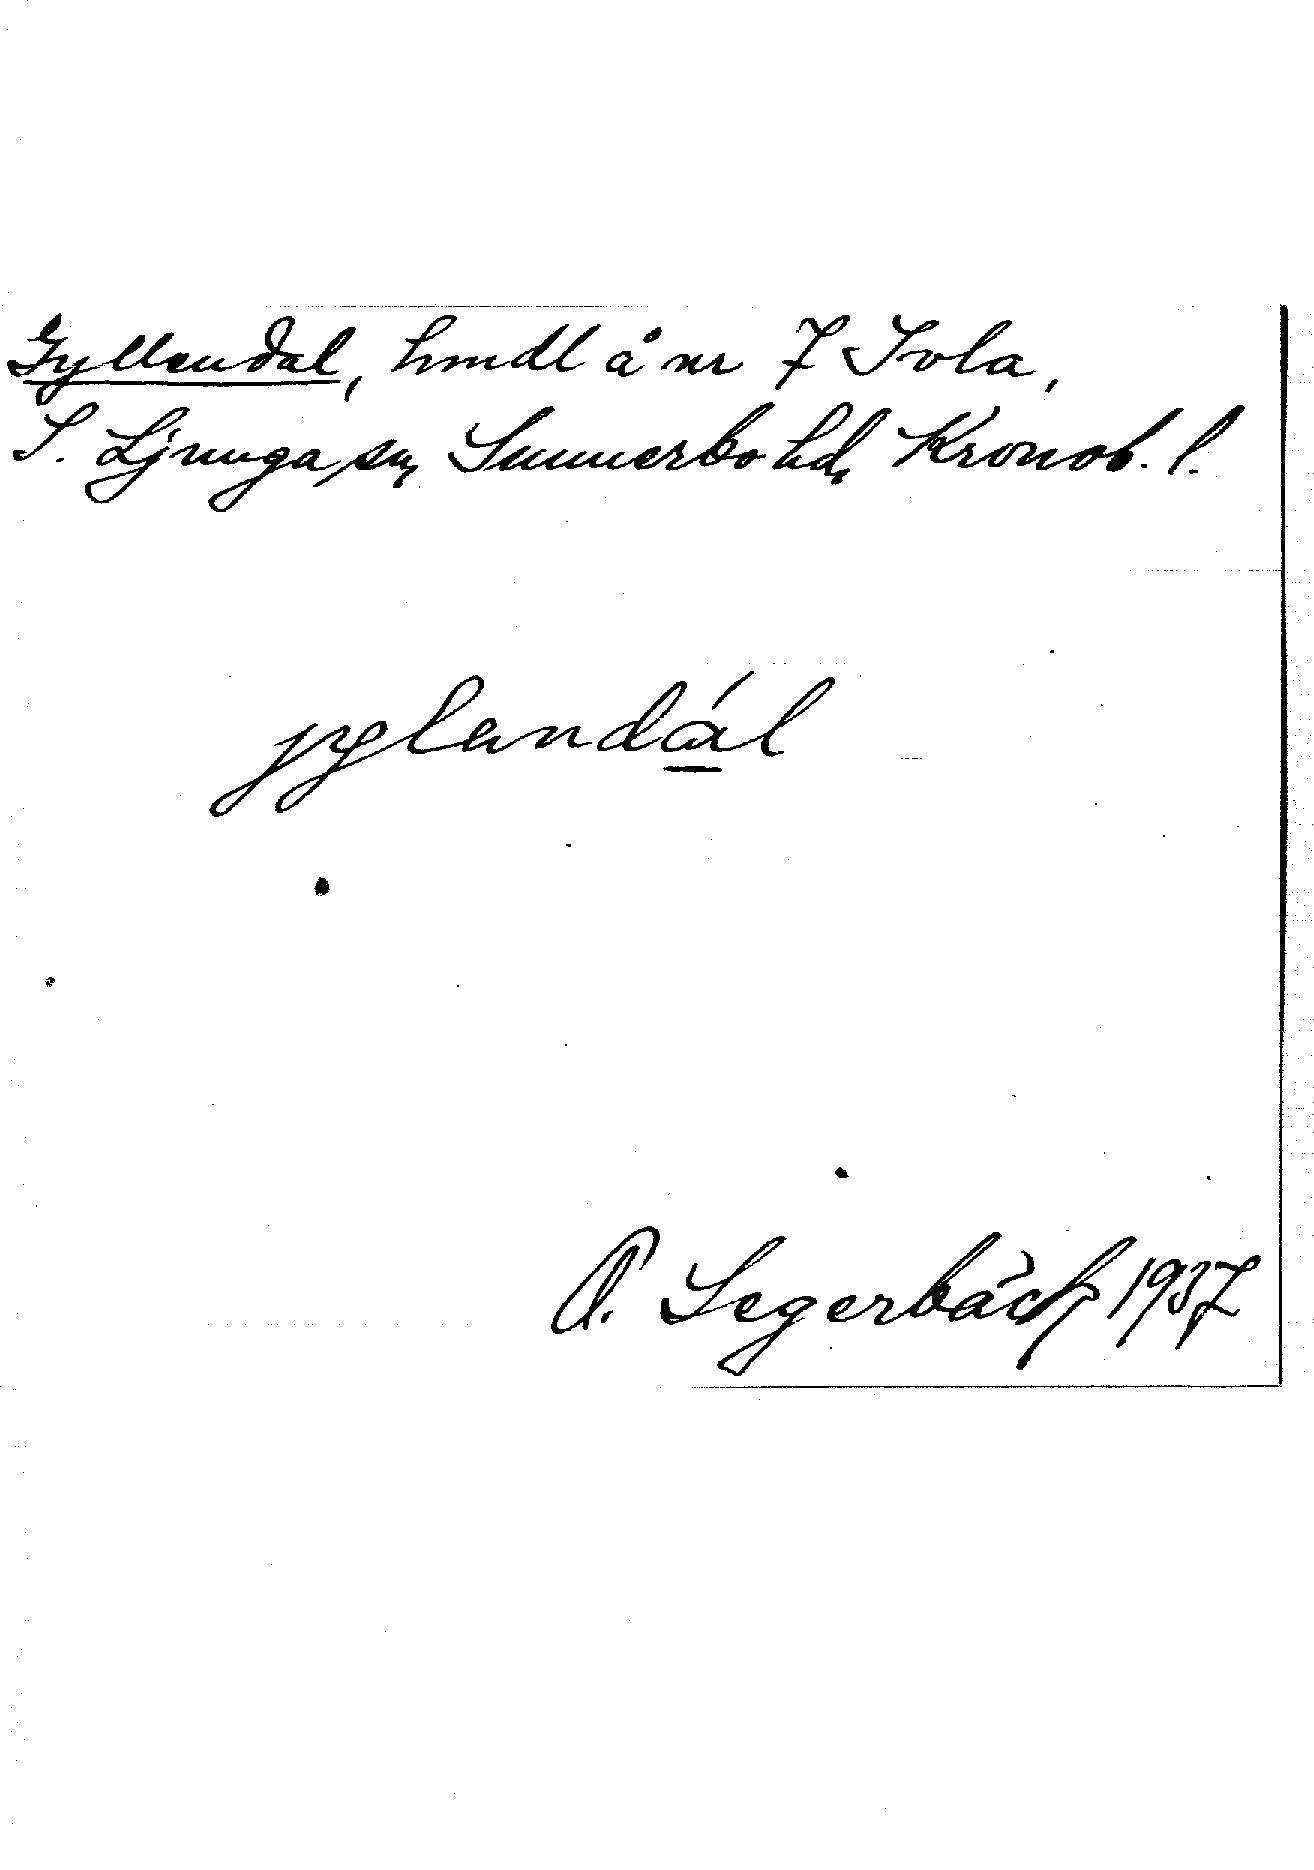 Gyllendal, hmdl å nr 7 Ivla,
S. Ljunga sn, Sunnerbo hd, Kronob. l.
jylandál
O. Segerbäck 1937